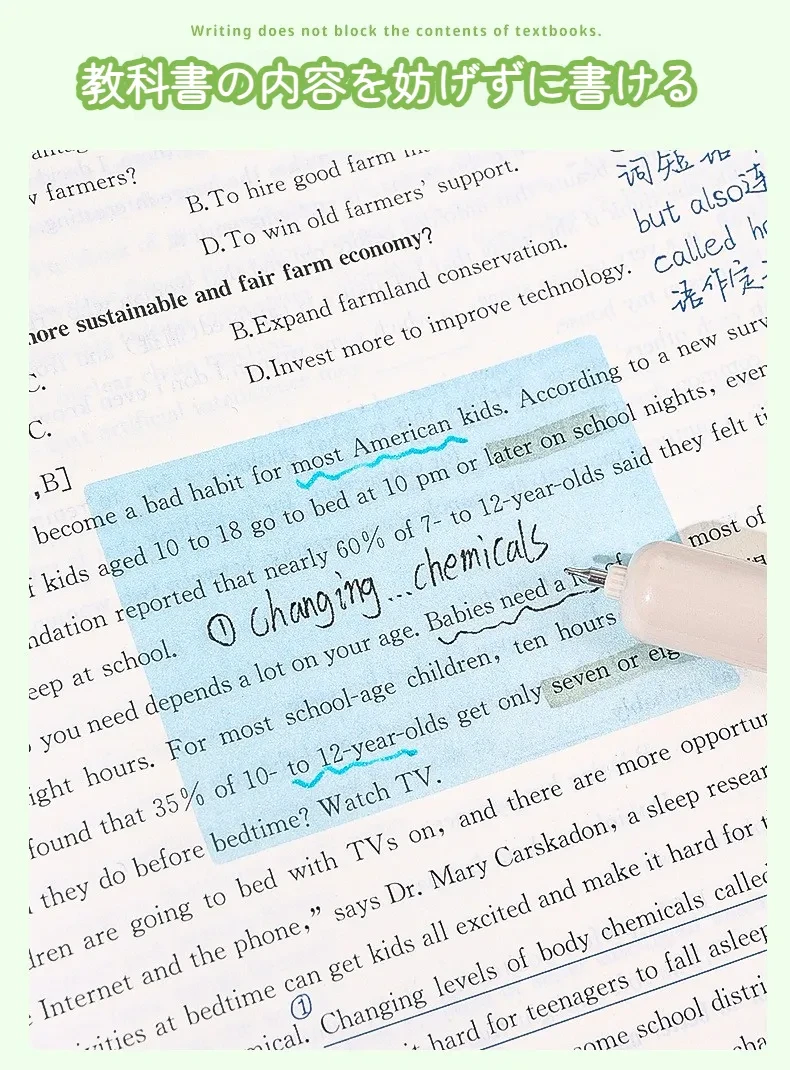 Writing does not block the contents of textbooks.
教科書の内容を妨げずに書ける
farmers?
B.To hire good farm
D.To win old farmers' support.
more sustainable and fair farm economy?
B.Expand farmland conservation.
D.Invest more to improve technology.
C.
C.
,B]
词短语
but also连
called
语作定
become a bad habit for most American kids. According to a new surv
kids aged 10 to 18 go to bed at 10 pm or later on school nights, ever
ndation reported that nearly 60% of 7- to 12-year-olds said they felt ti
eep at school. ① changing...chemicals most of
you need depends a lot on your age. Babies need a lot of
ight hours. For most school-age children, ten hours
found that 35% of 10- to 12-year-olds get only seven or eig
they do before bedtime? Watch TV.
dren are going to bed with TVs on, and there are more opportun
Internet and the phone," says Dr. Mary Carskadon, a sleep resear
vities at bedtime can get kids all excited and make it hard for t
① mical. Changing levels of body chemicals called
t hard for teenagers to fall asleep
ome school distri